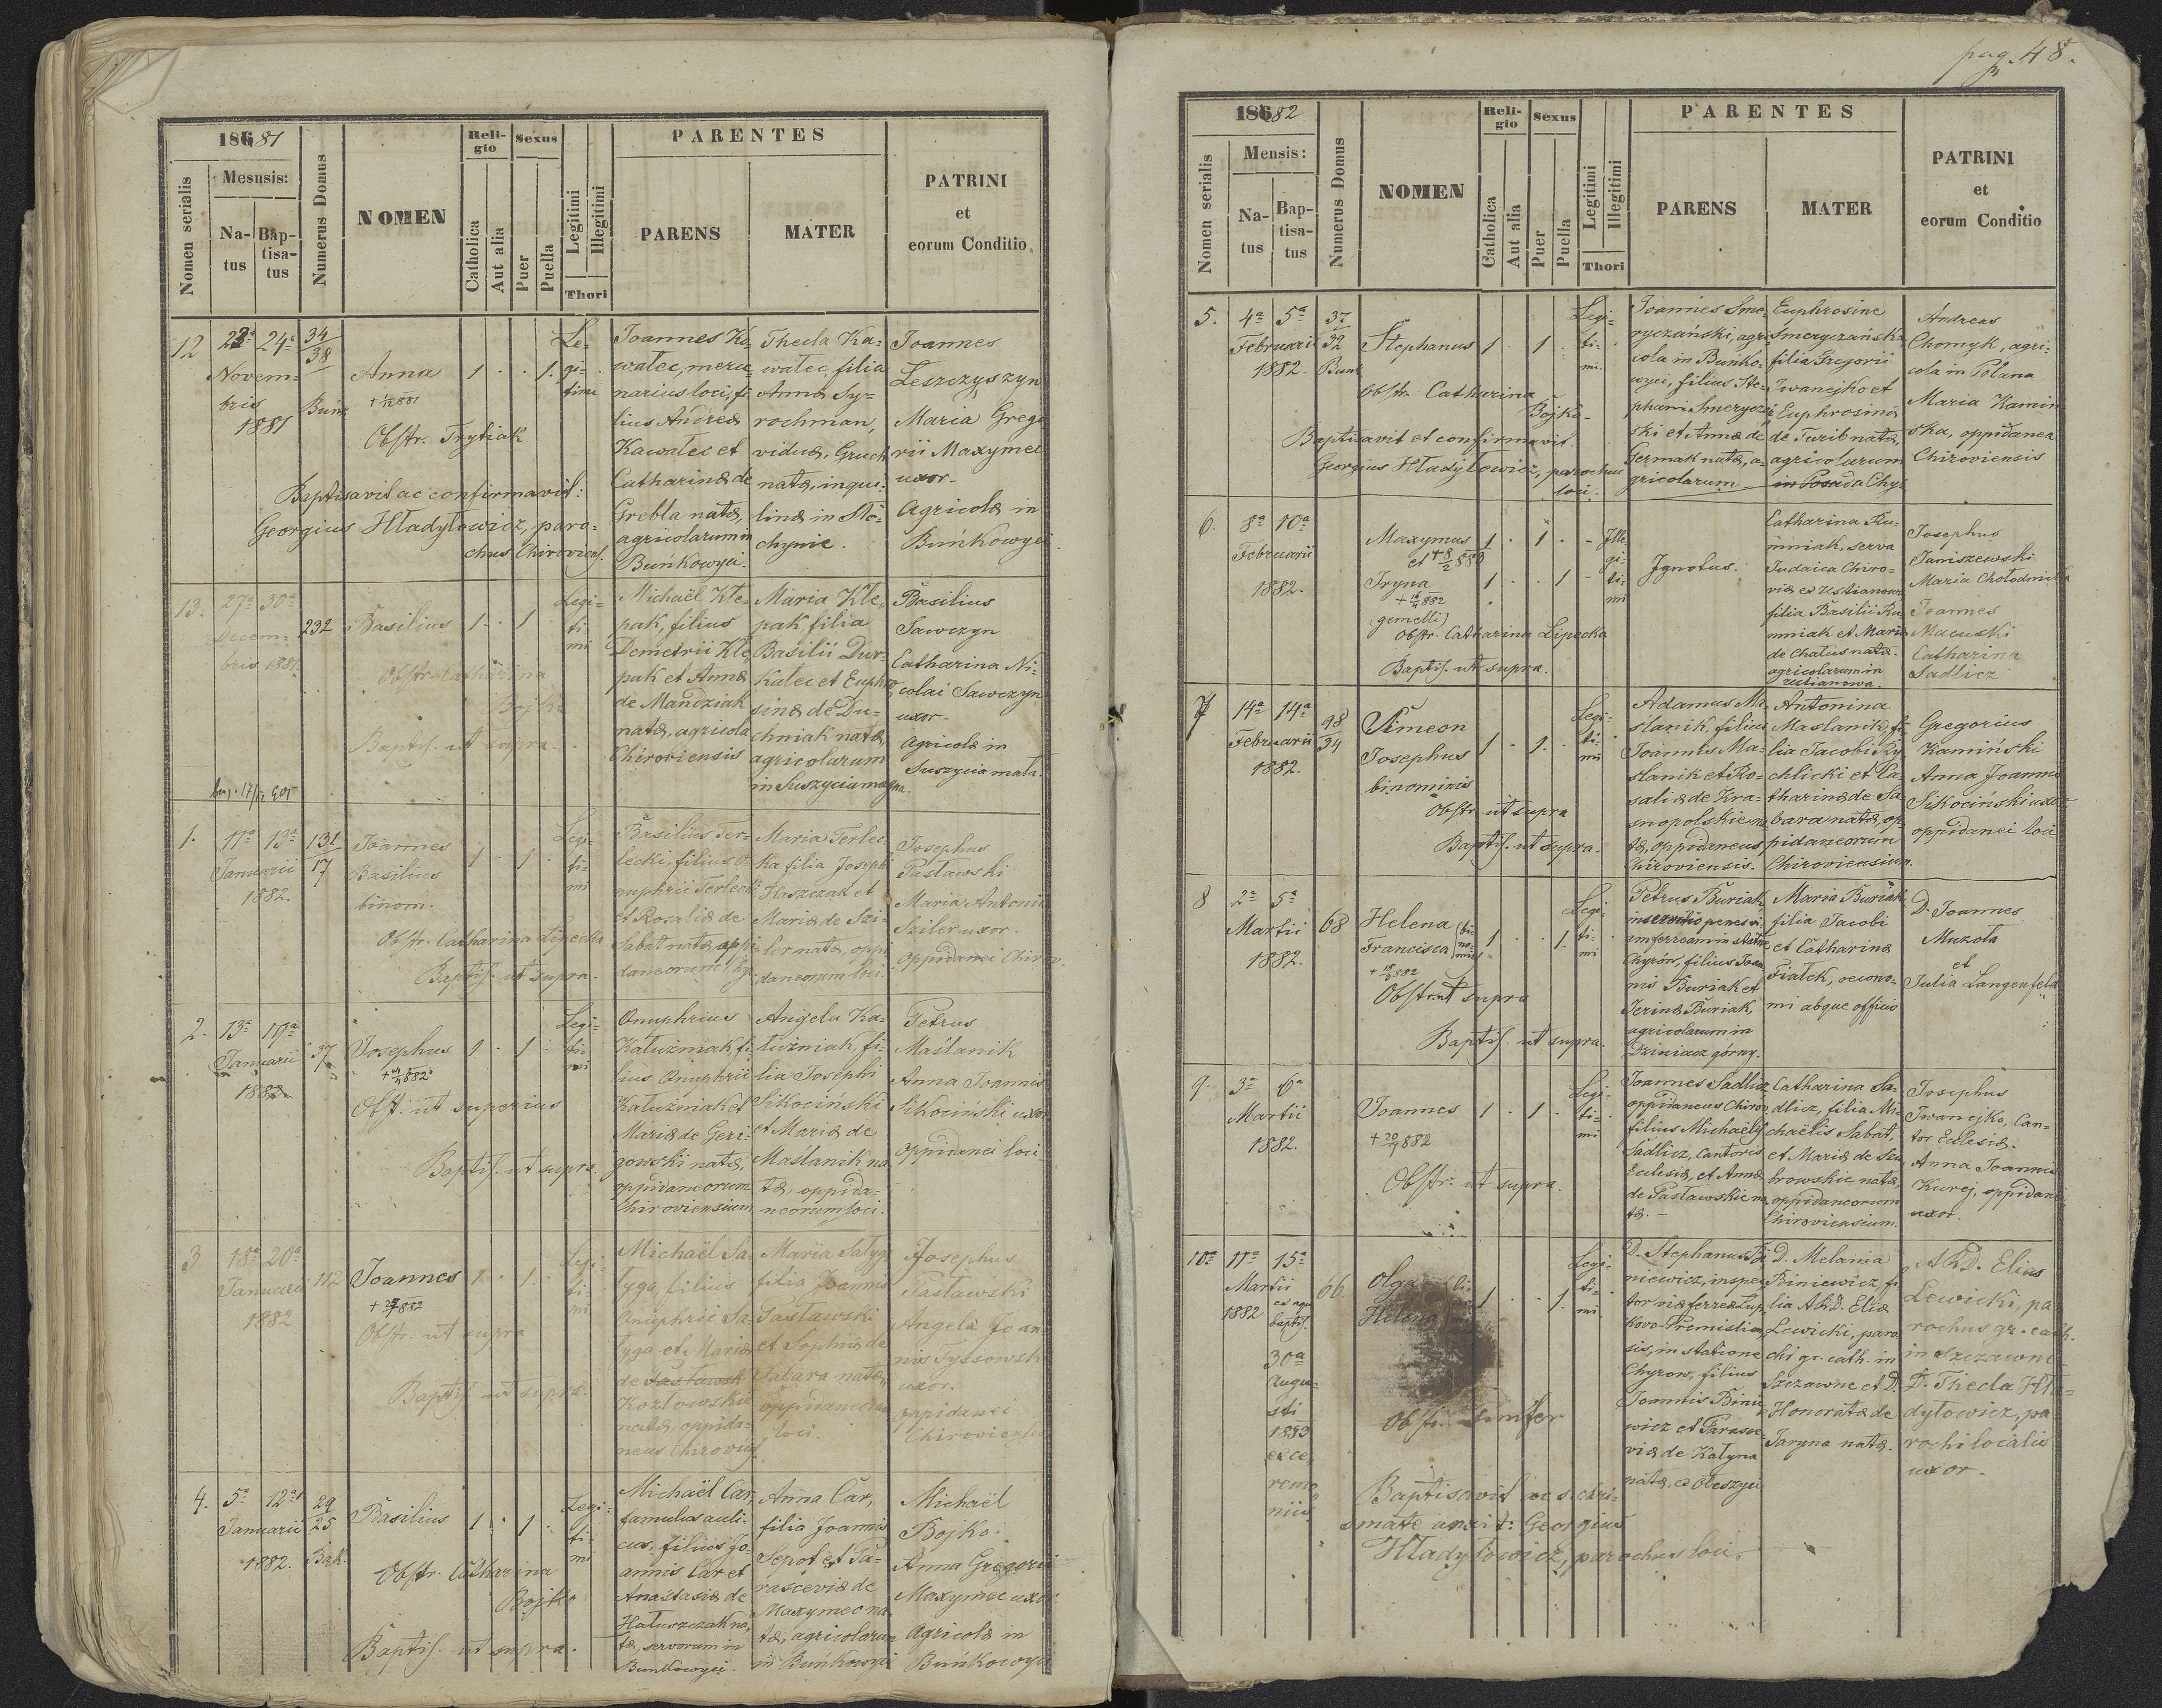 186 81
Reli-
gio
Sexus
PARENTES
Nomen serialis
Mesnsis:
Na-
tus
Bap-
tisa-
tus
Numerus Domus
NOMEN
Catholica
Aut alia
Puer
Puella
Legitimi
Illegitimi
Thori
PARENS
MATER
PATRINI
et
eorum Conditio
12
24a
34
38
Novem-
bris
1881
Anna
1 . . 1.
Le-
gi-
timi
Obstr. Trytiak
Baptisavit ac confirmavit:
Georgius Hładyłowicz, paro-
chus Chiroviens.
Joannes Ko-
walec, merce-
narius loci, fi-
lius Andreæ
Kawalec et
Catharinæ de
Grebla natæ,
agricolarum in
Buńkowyci.
Thecla Ka-
walec, filia
Annæ Sy-
rochman,
viduæ, Gruch
natæ, inqui-
linæ in Sto-
chynie.
Joannes
Leszczyszyn
Maria Grego
rii Maxymec
uxor-
Agricolæ in
Buńkowyci.
13.
27a 30a
Decem-
bris 1881.
232
Basilius
1 . 1
Legi-
ti-
mi
Obstr. Catharina
Bojko
Baptis. ut supra-
Michaël Kle-
pak, filius
Demetrii Kle-
pak et Annæ
de Mandziak
natæ, agricola
Chiroviensis
Maria Kle-
pak filia
Basilii Dur-
kalec et Euphro
sinæ de Du-
chniak natæ,
agricolarum
in Suszyciamagna.
Basilius
Sawczyn
Catharina Ni-
colai Sawczyn
uxor-
Agricolæ in
Suszycia mała.
1.
11a 13a
131
17
Januarii
1882.
Joannes
Basilius
binom.
1 . 1
Legi-
ti-
mi
Obstr. Catharina Lipecka
Baptis. ut supra-
Basilius Ter-
lecki, filius O-
nuphrii Terlecki
et Rosaliæ de
Sabat natæ oppi-
daneorum Chy
Maria Terlec-
ka filia Josephi
Huszczak et
Mariæ de Szi-
ler natæ, oppi
daneorum loci
Josephus
Pasławski
Maria Antonii
Sziler uxor-
oppidanei Chirov.
2.
13a 17a
Januarii
1882
37
Josephus
1 . 1
Legi-
ti-
mi
Obst. ut superius
Baptis. ut supra.
Onuphrius
Kałużniak, fi-
lius Onuphrii
Kałużniak et
Mariæ de Geri-
gowski natæ,
oppidaneorum
Chiroviensium
Angela Ka-
łużniak, fi-
lia Josephi
Sikociński
et Mariæ de
Maslanik na
tæ, oppida-
neorum loci.
Petrus
Maślanik
Anna Joannis
Sikociński uxor
oppidanei loci
3
18a 20a
Januarii
1882
112
Joannes
1 . 1.
Legi-
ti-
mi
Obstr. ut supra
Baptis. ut supra.
Michaël Sa-
łyga, filius
Onuphrii Sa-
łyga et Mariæ
de Pasławsk
Kozłowskie
natæ, oppida-
neus Chirovien
Maria Sałyga
filia Joannis
Pasławski
et Sophiæ de
Satara natæ,
oppidaneorum
loci.
Josephus
Pasławski
Angela Joan
nis Tyssowsk
uxor.
oppidanei
Chirovienses
4.
5a 12a
29
25
Januarii
1882.
Bak.
Basilius
1 . 1 .
Legi-
ti-
mi
Obstr. Catharina
Bojko
Baptis. ut supra.
Michaël Car,
famulus auli-
cus, filius Jo-
annis Car et
Anastasiæ de
Hałuszczak na-
tæ, servorum in
Buńkowyci.
Anna Car,
filia Joannis
Sepot et Pa-
rasceviæ de
Maxymec na-
tæ, agricolarum
in Buńkowyci
Michaël
Bojko.
Anna Gregorii
Maxymec uxor
Agricolæ in
Buńkowyci
pag. 48.
186 82
Reli-
gio
Sexus
PARENTES
Nomen serialis
Mensis:
Na-
tus
Bap-
tisa-
tus
Numerus Domus
NOMEN
Catholica
Aut alia
Puer
Puella
Legitimi
Illegitimi
Thori
PARENS
MATER
PATRINI
et
eorum Conditio
5.
4a 5a
37
32
Februarii
1882.
Buńk
Stephanus
1 . 1 .
Legi-
ti-
mi.
Obstr. Catharina
Bojko-
Baptisavit et confirmavit.
Georgius Hładyłowicz, parochus
loci.
Joannes Sme-
ryczański, agri-
cola in Buńko-
wyci, filius Ste-
phani Smeryczań
ski et Annæ de
Jermak natæ, a-
gricolarum
Euphrosine
Smeryczańska
filia Gregorii
Iwanejko et
Euphrosinæ
de Turik natæ,
agricolarum
in Posada Chyr.
Andreas
Chomyk, agri-
cola in Polana
Maria Kamin
ska, oppidanea
Chiroviensis
6.
8a 10a
Februarii
1882.
Maxymus
et
Iryna
(gemelli)
Obstr. Catharina Lipecka
Baptis. ut supra.
1 . 1 .
1 . . 1
Ille
gi-
ti-
mi
Ignotus.
Catharina Ru-
mniak, serva
Judaica Chiro-
viæ ex Zestianowa
filia Basilii Ru
mniak et Mariæ
de Chalus natæ.
agricolarum in
Zestianowa.
Josephus
Janiszewski
Maria Chołodniuk
Joannes
Macuski
Catharina
Sadlicz
7
14a 14a
98
34
Februarii
1882.
Simeon
Josephus
binominis
1 . 1.
Legi-
ti-
mi
Obstr. ut supra
Baptis. ut supra.
Adamus Ma-
slanik, filius
Joannis Ma-
slanik et Ro-
saliæ de Kra-
snopolskie na
tæ, oppidaneus
Chiroviensis.
Antonina
Maslanik, fi-
lia Jacobi Ry-
chlicki et Ca-
tharinæ de Sa-
bara natæ, op-
pidaneorum
Chiroviensium.
Gregorius
Kamiński
Anna Joannis
Sikociński uxor
oppidanei loci
8
2a 5a
Martii
1882.
68
Helena
Francisca
(bi-
no-
mis
1 . . 1.
Legi-
ti-
mi
Obstr. ut supra
Baptis. ut supra.
Petrus Buriak
in servitio penes vi-
am ferream in statione
Chyrów, filius Joan
nis Buriak et
Irinæ Buriak,
agricolarum in
Dziniacz górny.
Maria Buriak
filia Jacobi
et Catharinæ
Fiałek, oecono-
mi absque officio
D. Joannes
Muzoła
et
Julia Langenfeld
9.
3a 6a
Martii
1882.
Joannes
+ 20 882
1 . 1 .
Legi-
ti-
mi
Obstr. ut supra.
Joannes Sadlicz
oppidaneus Chirov
filius Michaëlis
Sadlicz, Cantoris
Ecclesiæ, et Annæ
de Pasławskie na
tæ. -
Catharina Sa-
dlicz, filia Mi-
chaëlis Sabat,
et Mariæ de Szu
browskie natæ,
oppidaneorum
Chiroviensium.
Josephus
Iwanejko, Can-
tor Eclesiæ.
Anna Joannis
Kurej, oppidanei
uxor.
10a
11a 15a
Martii
1882
baptis.
30a
Augu-
sti
1883
ex ce
remo
niis
66.
Olga
Helena
(bi-
1 . . 1.
Legi-
ti-
mi.
Obstr.
Baptisavit ac s. chri-
smate unxit: Georgius
Hładyłowicz, parochus loci.
D. Stephanus Bi
niewicz, inspec
tor viæ ferreæ Łup-
kovo-Premislien
sis, in statione
Chyrow, filius
Joannis Binie
wicz et Parasce
viæ de Kałyna
natæ, ex Oleszyci
D. Melania
Biniewicz, fi-
lia A.R.D. Eliæ
Lewicki, paro
chi gr. cath. in
Szczawne et D.
Honoratæ de
Jaryna natæ.
A.R.D. Elias
Lewicki, pa
rochus gr. cath.
in Szczawne-
D. Thecla Hła-
dyłowicz, pa-
rochi localis
uxor.